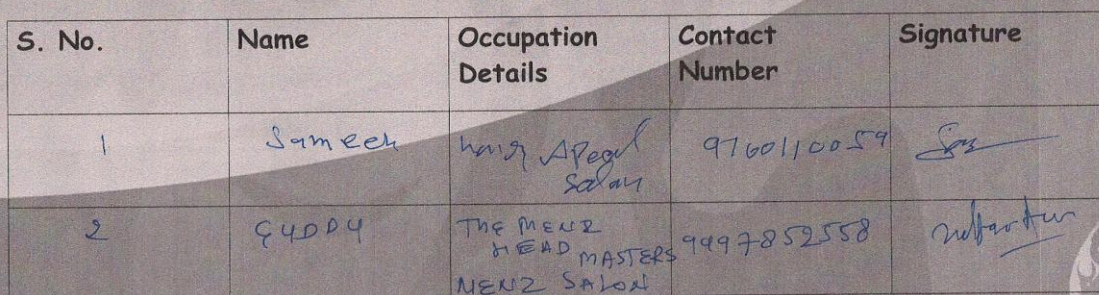 S. No. Name Occupation Details Contact Number Signature
1 Sameer hair Apeal Salon 9760110059
2 GUDDU THE MENZ HEAD MASTERS MENZ SALON 9997852558